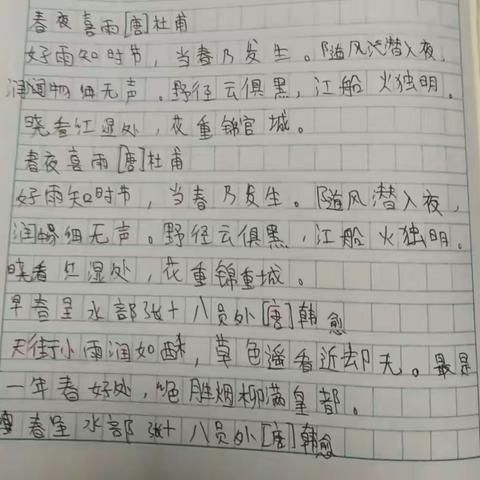 春夜喜雨[唐]杜甫
好雨知时节，当春乃发生。随风潜入夜，
润物细无声。野径云俱黑，江船火独明。
晓看红湿处，花重锦官城。
春夜喜雨[唐]杜甫
好雨知时节，当春乃发生。随风潜入夜，
润物细无声。野径云俱黑，江船火独明。
晓看红湿处，花重锦重城。
早春呈水部张十八员外[唐]韩愈
天街小雨润如酥，草色遥看近却无。最是
一年春好处，绝胜烟柳满皇都。
早春呈水部张十八员外[唐]韩愈